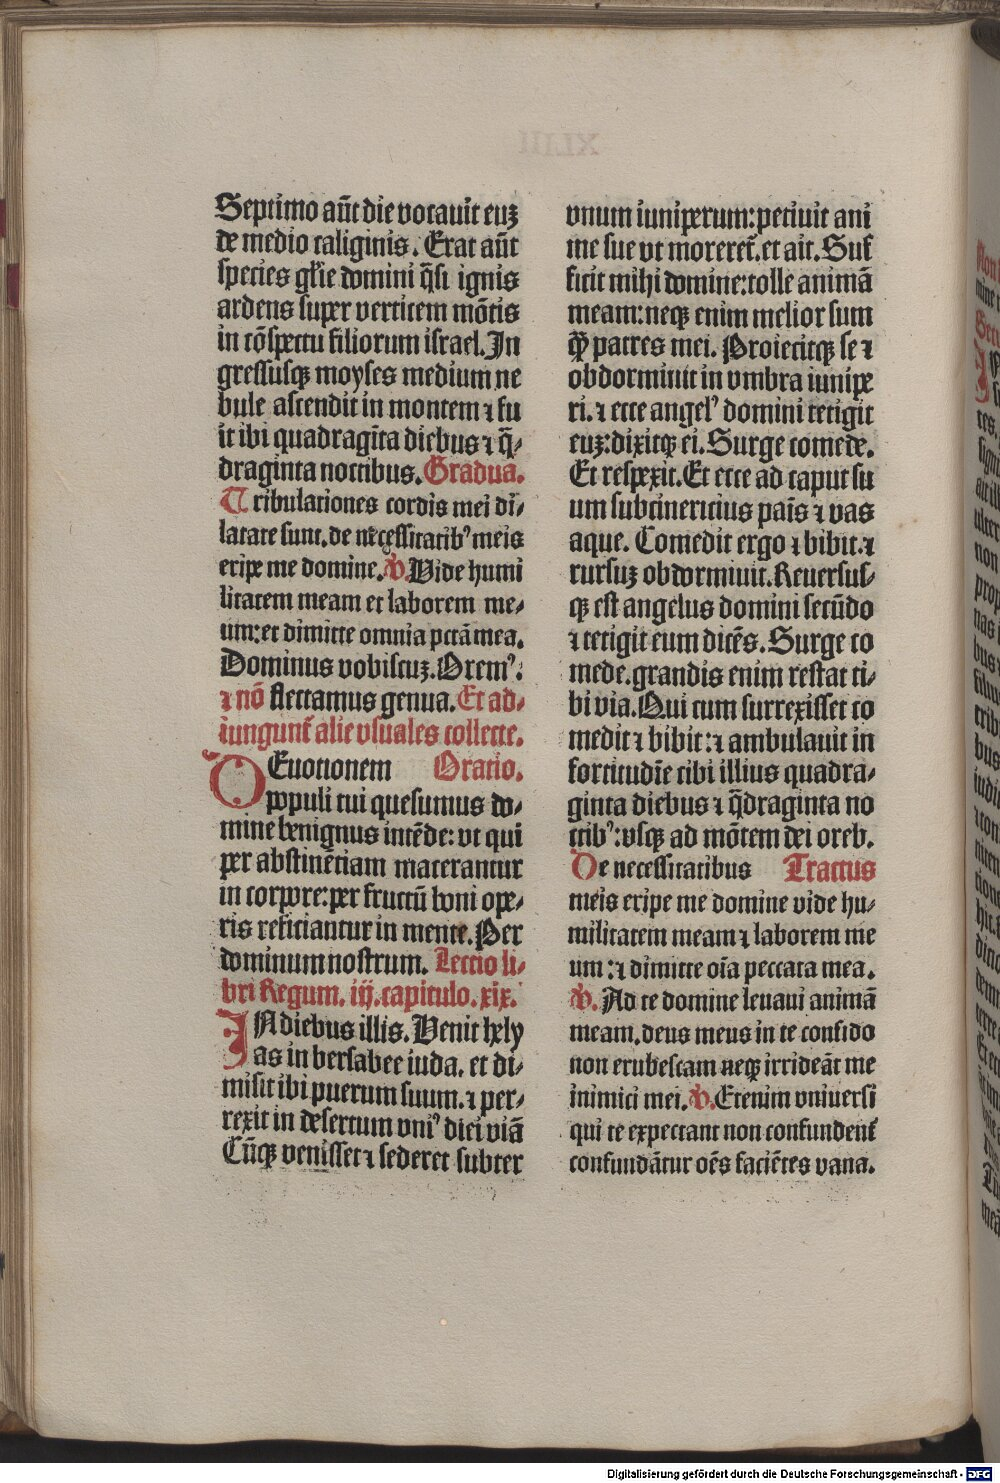 Septimo aũt die vocauit euꝫ
de medio caliginis. Erat aũt
species gl̃ie domini q̃si ignis
ardens super verticem mõtis
in cõspectu filiorum israel. In
gressusqꝫ moyses medium ne
bule ascendit in montem ⁊ fu
it ibi quadragĩta diebus ⁊ q̃⸗
draginta noctibus. Gradua.
Tribulationes cordis mei di⸗
latate sunt. de necessitatibꝰ meis
eripe me domine. V. Vide humi
litatem meam et laborem me⸗
um: et dimitte omnia pctã mea.
Dominus vobiscuꝫ. Oremꝰ:
⁊ nõ flectamus genua. Et ad⸗
iungunt̃ alie vsuales collecte.
DEuotionem Oratio.
populi tui quesumus do⸗
mine benignus intẽde: vt qui
per abstinẽtiam macerantur
in corpore: per fructũ boni ope⸗
ris reficiantur in mente. Per
dominum nostrum. Lectio li⸗
bri Regum. iij. capitulo. xix.
IN diebus illis. Venit hely
as in bersabee iuda. et di⸗
misit ibi puerum suum. ⁊ per⸗
rexit in desertum vniꝰ diei viã
Cũqꝫ venisset ⁊ sederet subter
vnum iuniperum: petiuit ani
me sue vt moreret̃. et ait. Suf
ficit mihi domine: tolle animã
meam: neqꝫ enim melior sum
q̃ꝫ patres mei. Proiecitqꝫ se ⁊
obdormiuit in vmbra iunipe
ri. ⁊ ecce angelꝰ domini tetigit
euꝫ: dixitqꝫ ei. Surge comede.
Et respexit. Et ecce ad caput su
um subcinericius pañis ⁊ vas
aque. Comedit ergo ⁊ bibit. ⁊
rursuꝫ obdormiuit. Reuersus⸗
qꝫ est angelus domini secũdo
⁊ tetigit eum dicẽs. Surge co
mede. grandis enim restat ti⸗
bi via. Qui cum surrexisset co
medit ⁊ bibit: ⁊ ambulauit in
fortitudĩe cibi illius quadra⸗
ginta diebus ⁊ q̃draginta no
ctibꝰ: vsqꝫ ad mõtem dei oreb.
De necessitatibus Tractus
meis eripe me domine vide hu⸗
militatem meam ⁊ laborem me
um: ⁊ dimitte oĩa peccata mea.
V. Ad te domine leuaui animã
meam. deus meus in te confido
non erubescam neqꝫ irrideãt me
inimici mei. V. Etenim vniuersi
qui te expectant non confundent̃
confundãtur oẽs faciẽtes vana.
Digitalisierung gefördert durch die Deutsche Forschungsgemeinschaft - DFG